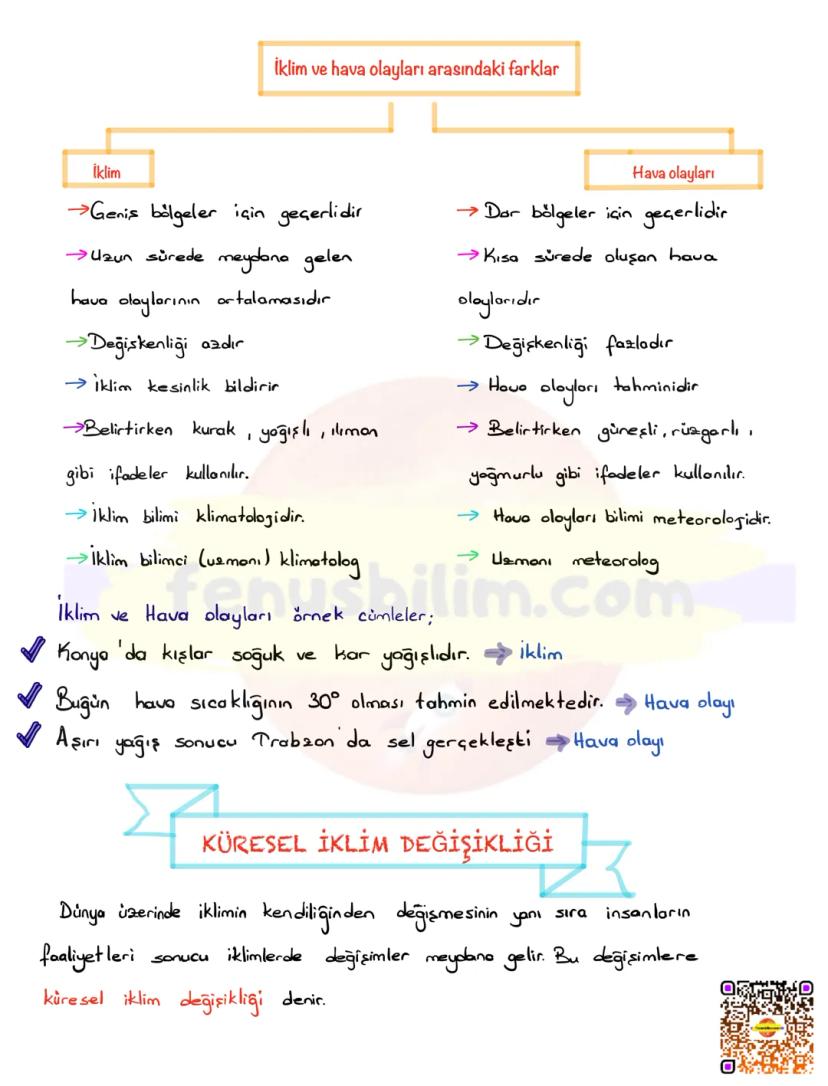 İklim ve hava olayları arasındaki farklar
İklim
→Geniş bölgeler için geçerlidir
→Uzun sürede meydana gelen
hava olaylarının ortalamasıdır
→Değişkenliği azdır
→İklim kesinlik bildirir
→Belirtirken kurak, yağışlı, ılıman
gibi ifadeler kullanılır.
→İklim bilimi klimatolojidir.
→İklim bilimci (uzmanı) klimatolog
Hava olayları
→ Dar bölgeler için geçerlidir
→Kısa sürede oluşan hava
olaylarıdır
→Değişkenliği fazladır
→ Hava olayları tahminidir
→ Belirtirken güneşli, rüzgarlı,
yağmurlu gibi ifadeler kullanılır.
→ Hava olayları bilimi meteorolojidir.
→ Uzmanı meteorolog
fenusbilim.com
İklim ve Hava olayları örnek cümleler;
✓ Konya'da kışlar soğuk ve kar yağışlıdır. → İklim
✓ Bugün hava sıcaklığının 30° olması tahmin edilmektedir. → Hava olayı
✓ Aşırı yağış sonucu Trabzon'da sel gerçekleşti → Hava olayı
KÜRESEL İKLİM DEĞİŞİKLİĞİ
Dünya üzerinde iklimin kendiliğinden değişmesinin yanı sıra insanların
faaliyetleri sonucu iklimlerde değişimler meydana gelir. Bu değişimlere
küresel iklim değişikliği denir.